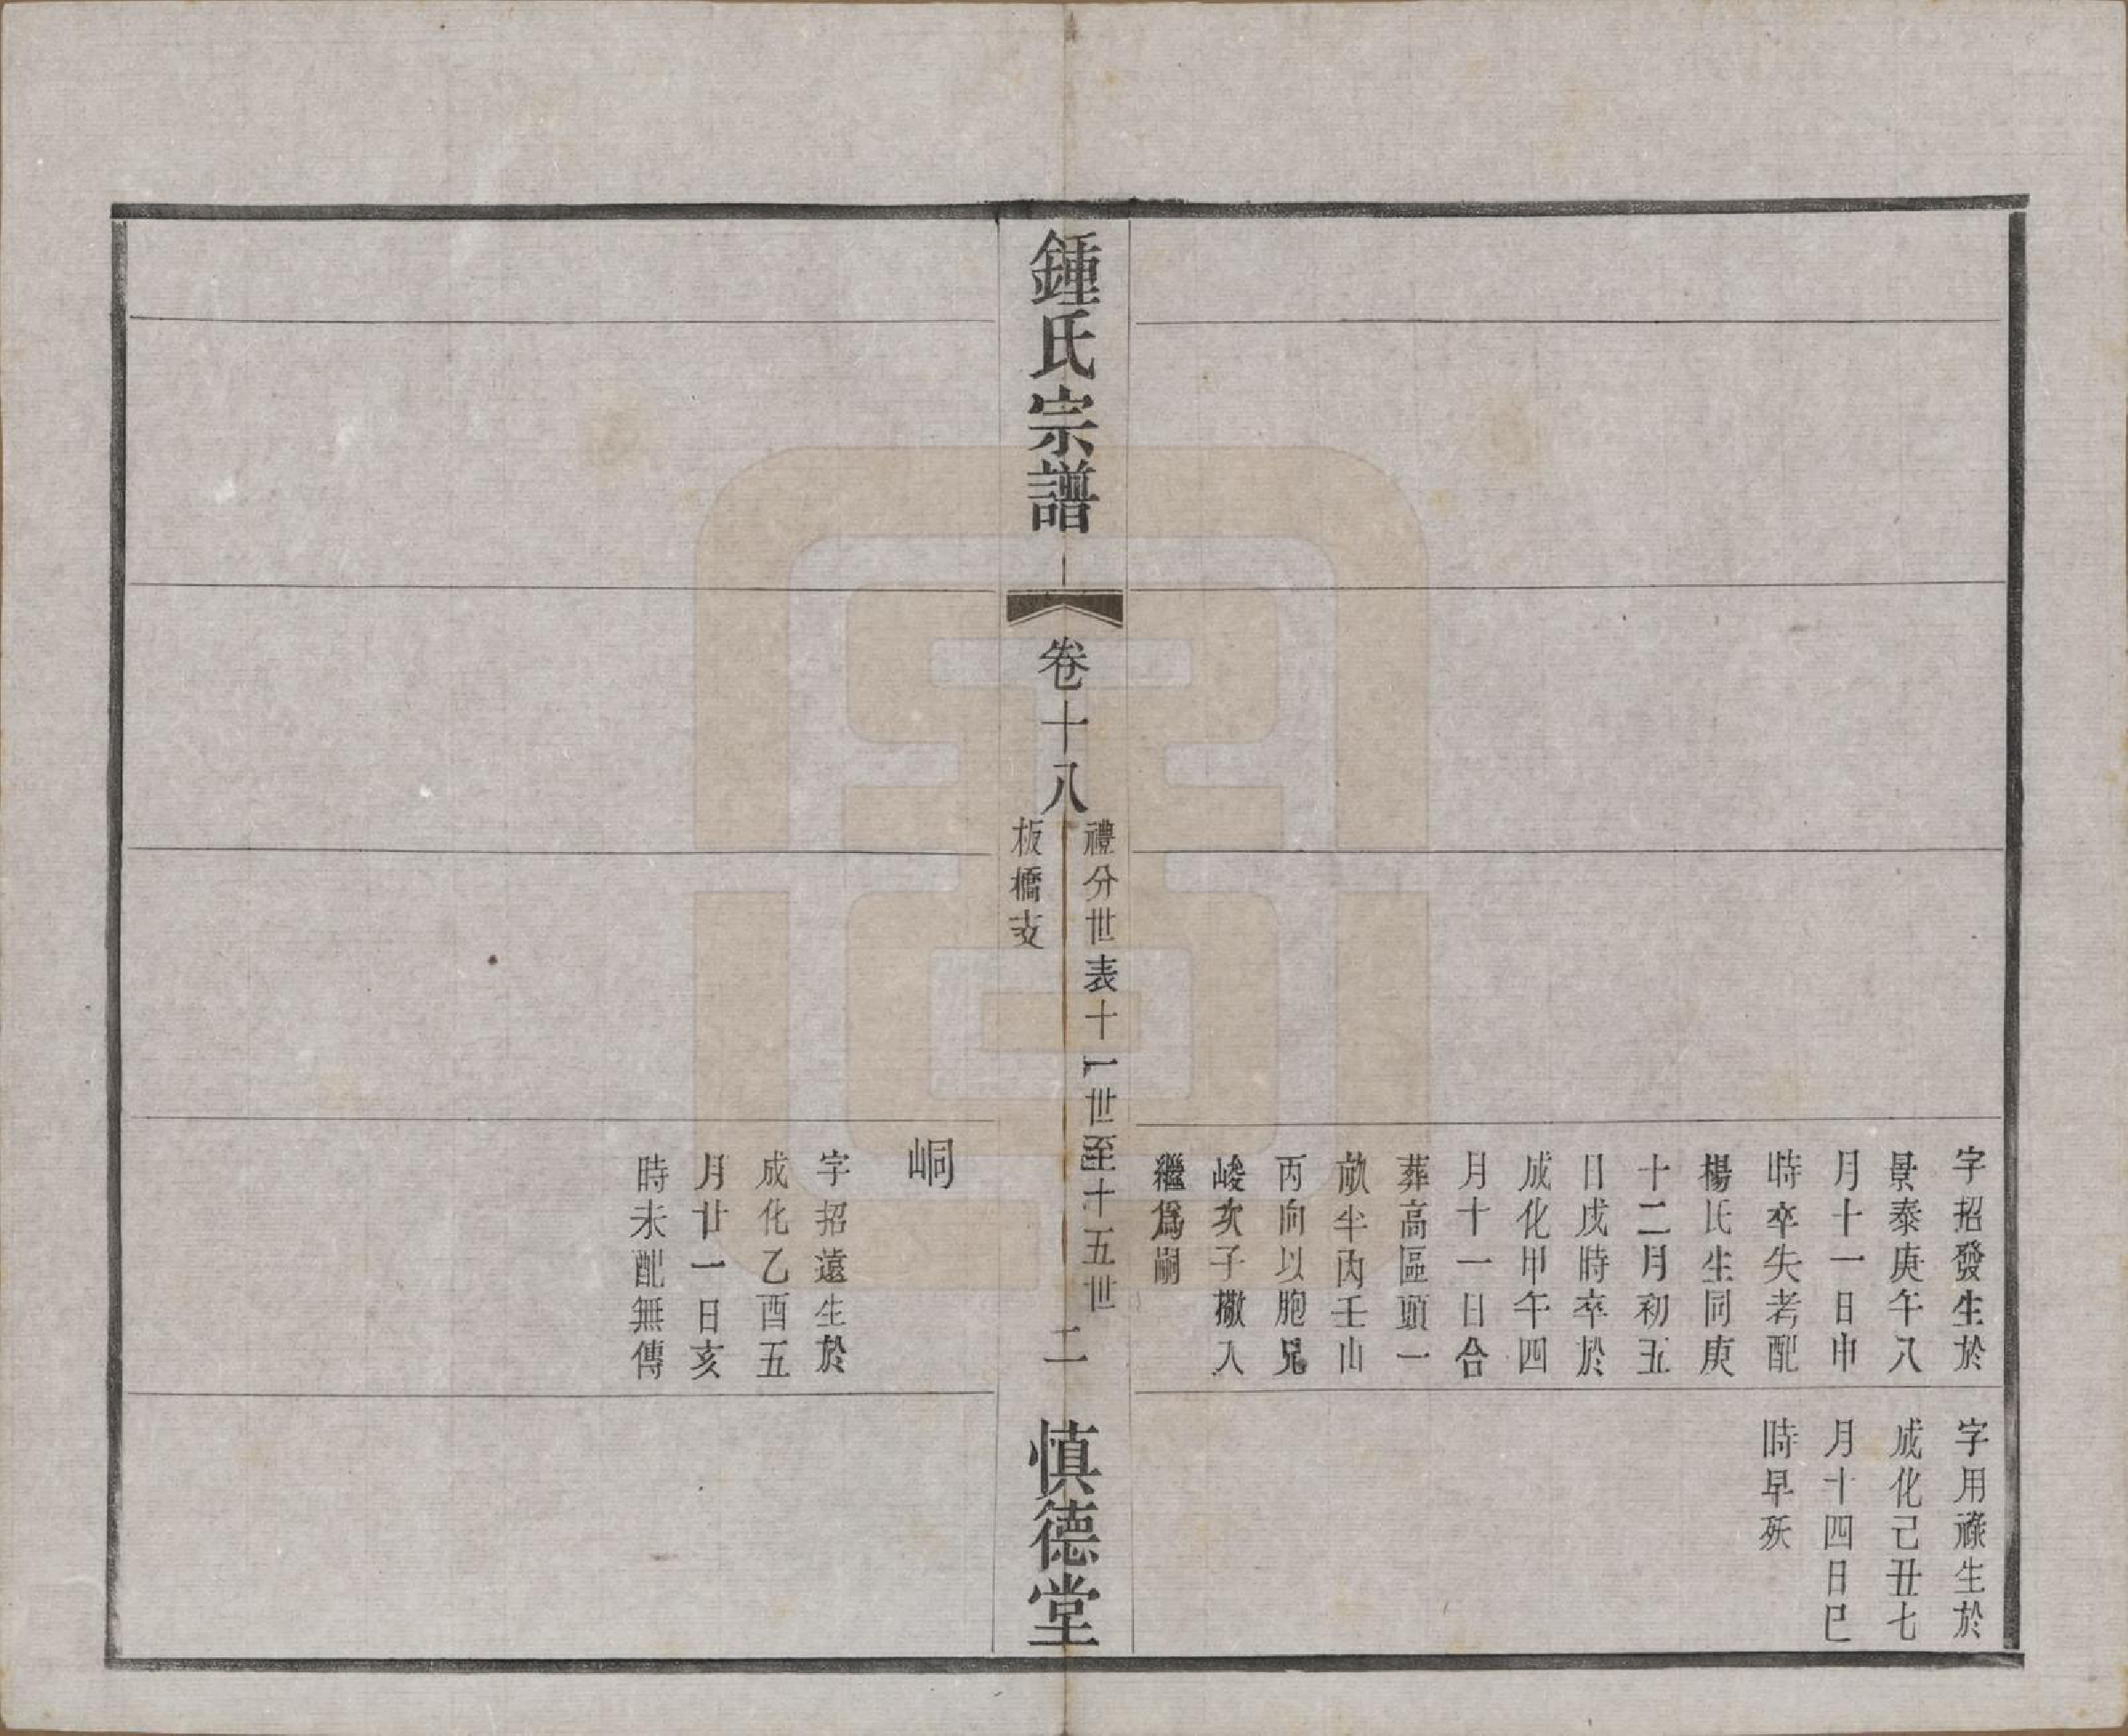 字招發生於
景泰庚午八
月十一日申
時卒失考配
楊氏生同庚
十二月初五
日戌時卒於
成化甲午四
月十一日合
葬高區頭一
畝半丙壬山
丙向以胞兄
峻次子撒入
繼爲嗣
字用祿生於
成化己丑七
月十四日巳
時早殀
鍾氏宗譜
卷十八
禮分世表十一世至十五世
板橋支
二
慎德堂
峒
字招遠生於
成化乙酉五
月廿一日亥
時未配無傳